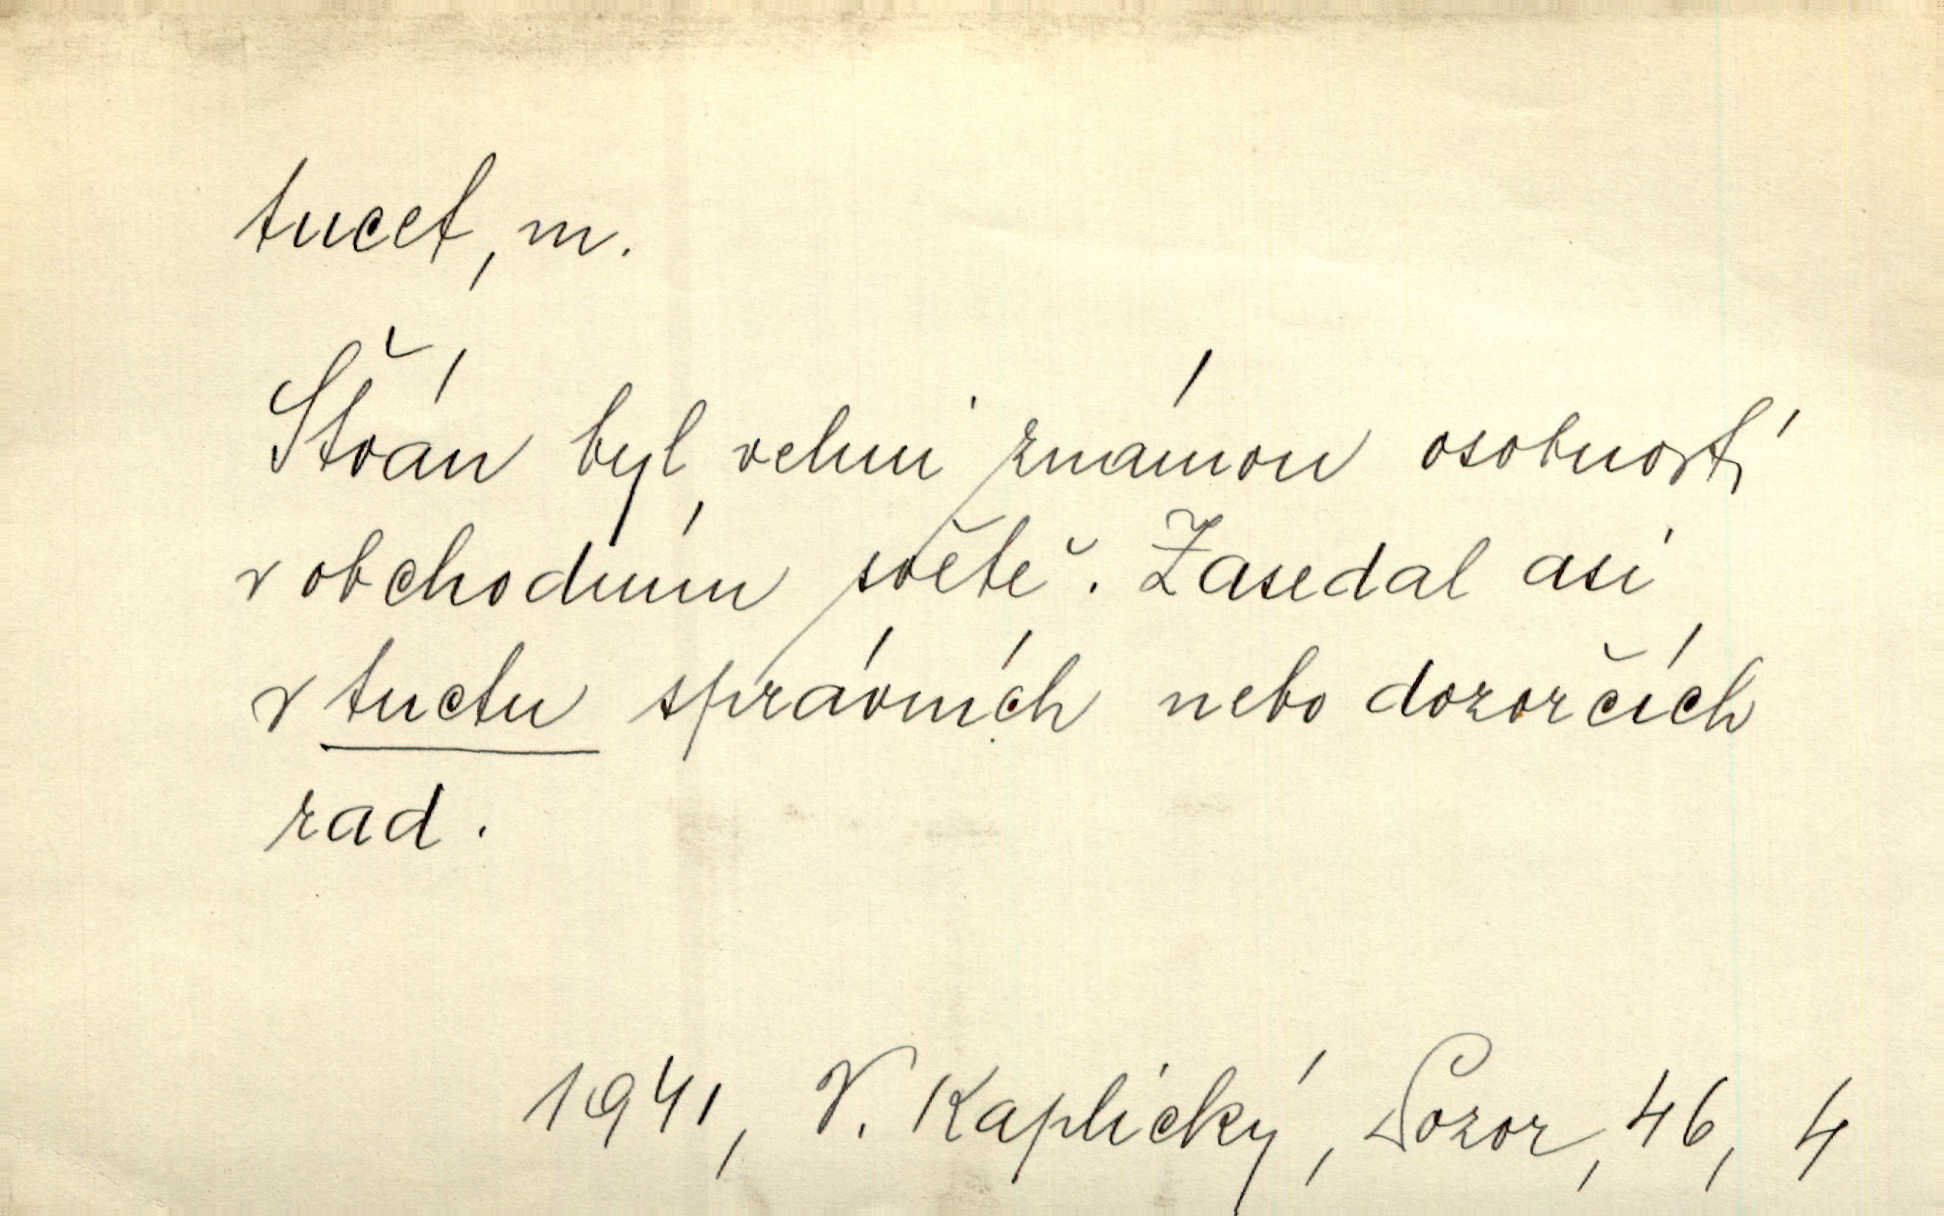 tucet, m.
Štván byl velmi známou osobností
v obchodním světě. Zasedal asi
v tuctu správních nebo dozorčích
rad.
1941, V. Kaplický, Pozor, 46, 4